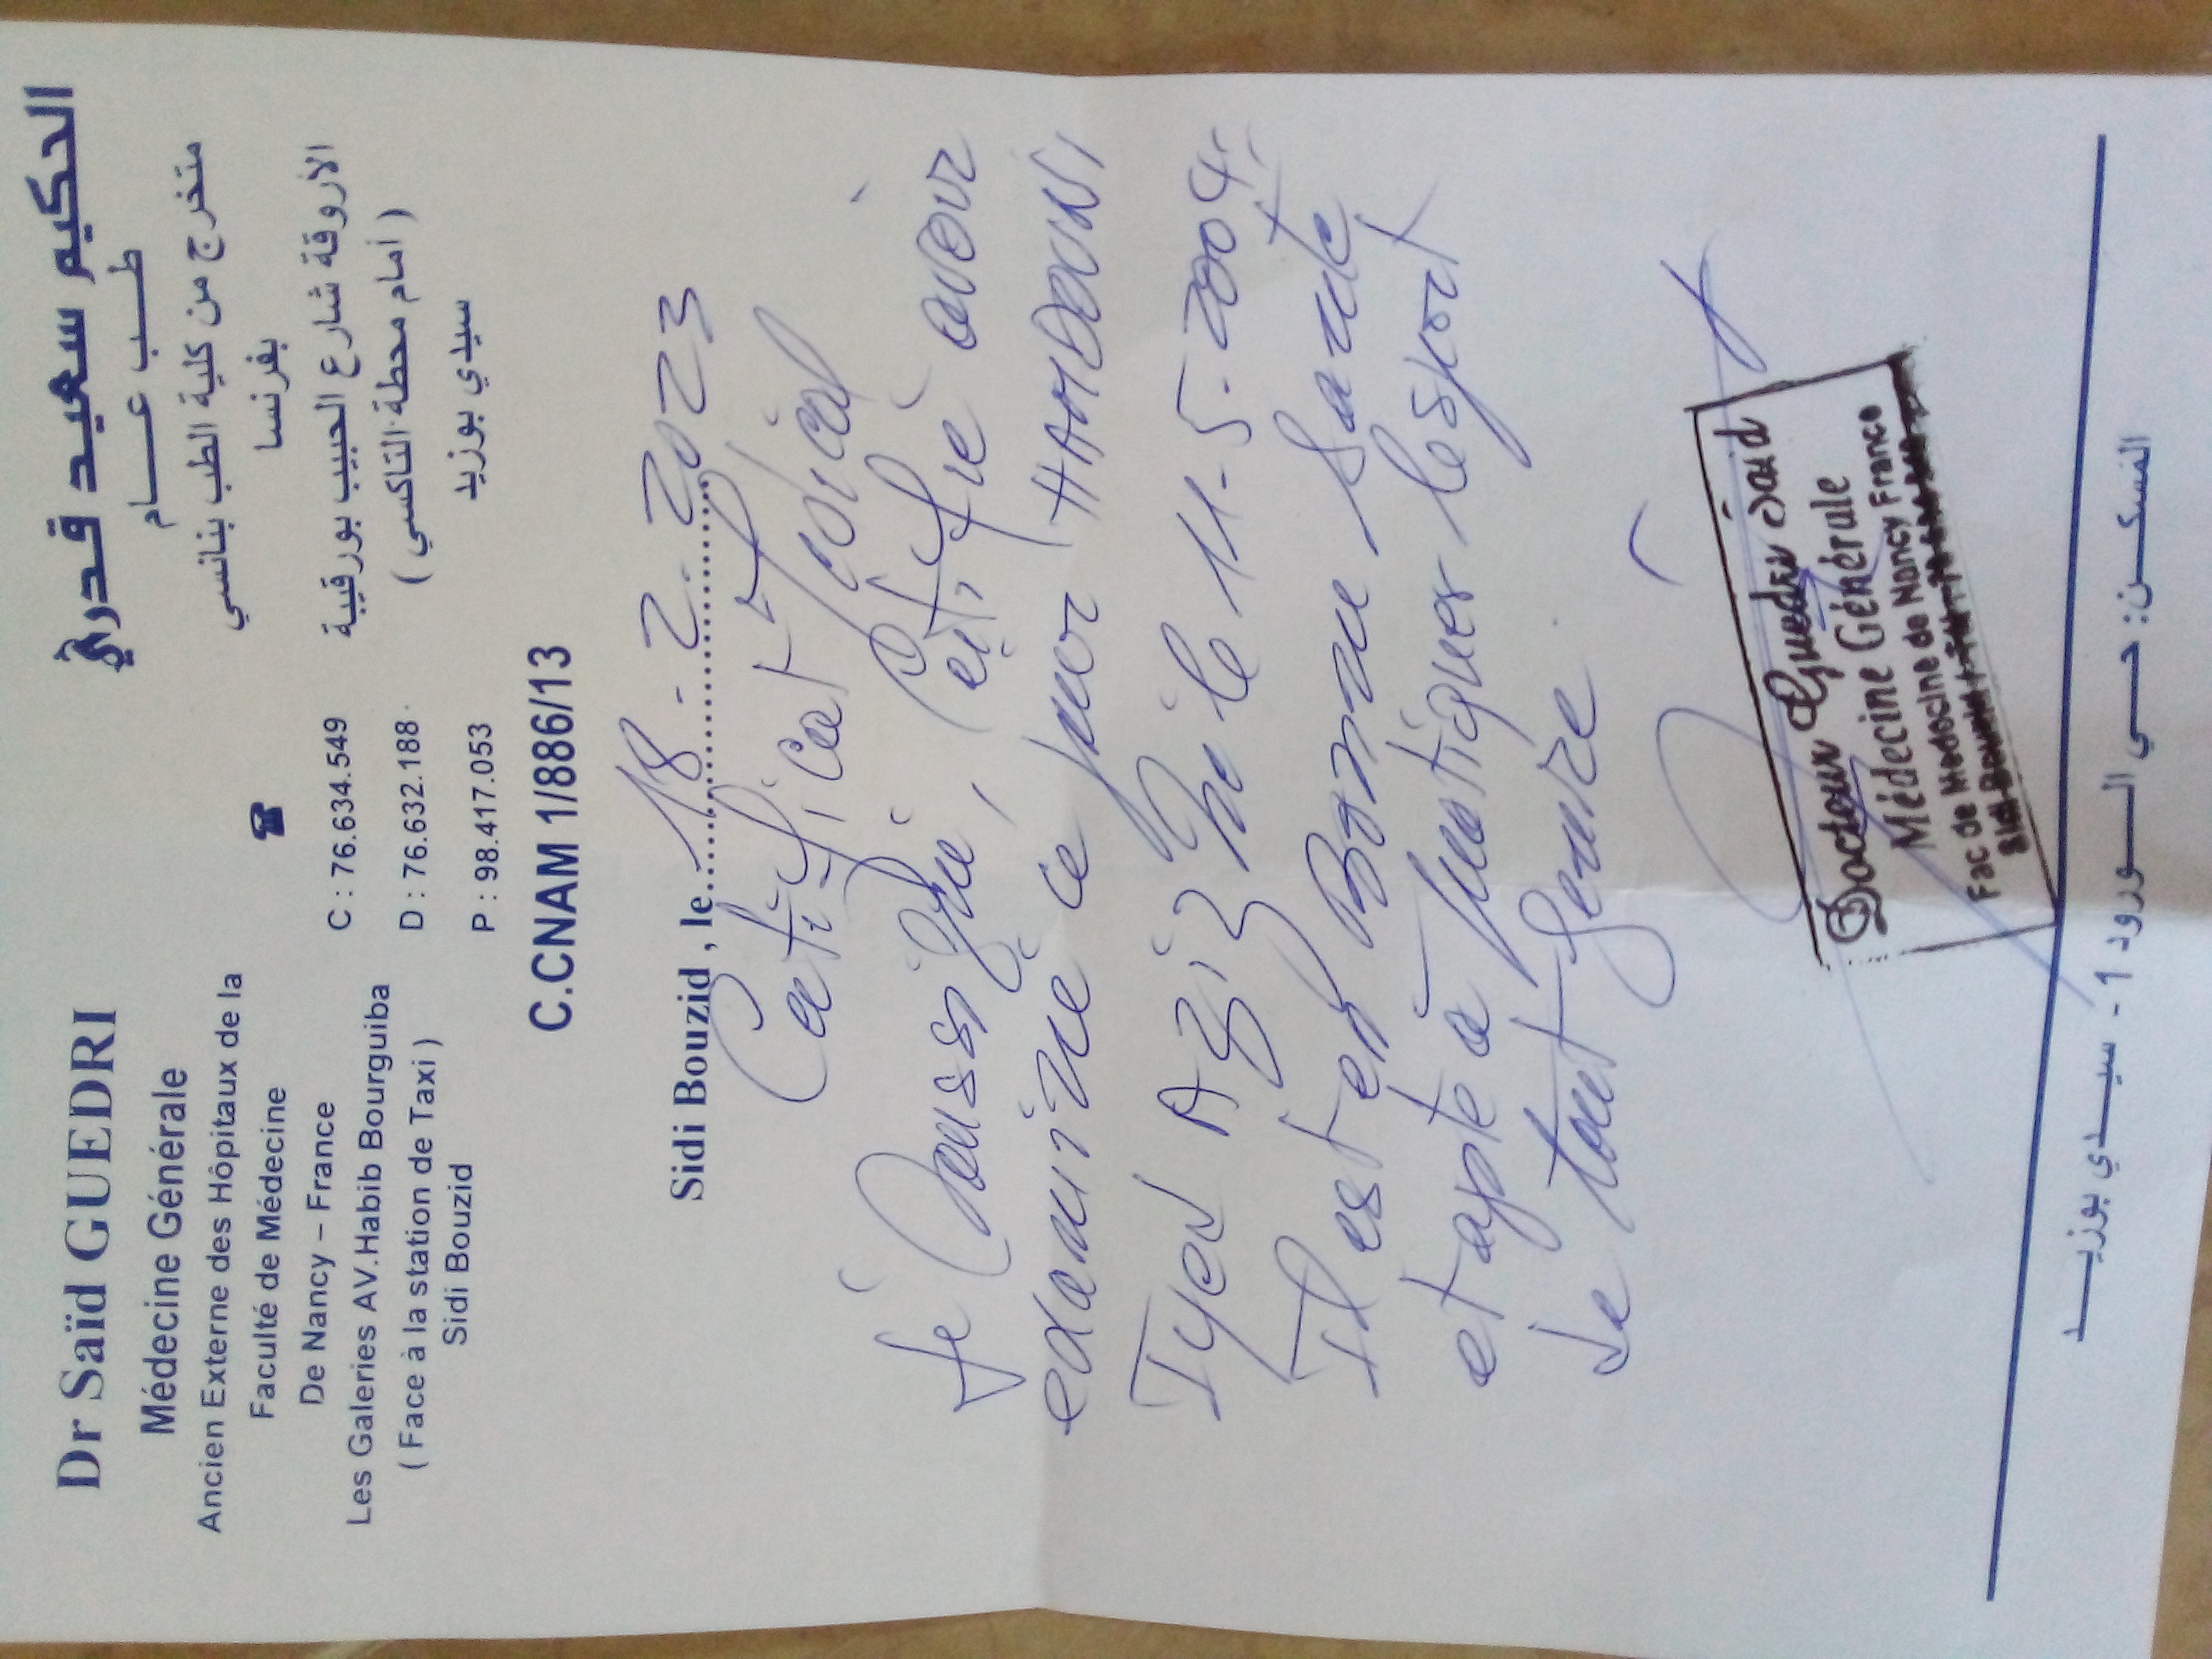 Dr Saïd GUEDRI
Médecine Générale
Ancien Externe des Hôpitaux de la
Faculté de Médecine
De Nancy – France
Les Galeries AV.Habib Bourguiba
( Face à la station de Taxi )
Sidi Bouzid
☎
C : 76.634.549
D : 76.632.188
P : 98.417.053
الحكيم سعيد قدري
طـــب عـــــام
متخرج من كلية الطب بنانسي
بفرنسا
الأروقة شارع الحبيب بورقيبة
( أمام محطة التاكسي )
سيدي بوزيد
C.CNAM 1/886/13
Sidi Bouzid , le 18 - 2 - 2023
Certificat Médical
Je Soussigné, Certifie avoir
examiné ce jour HAMDOUNI
Iyed Aziz Né le 11-5-2004
Il est en Bonne Santé
et apte à pratiquer le sport
de tout Genre
Docteur Guedri Said
Médecine Générale
Fac de Médecine de Nancy France
المسكـن: حــي الـــورود 1 - سيـــدي بوزيـــد